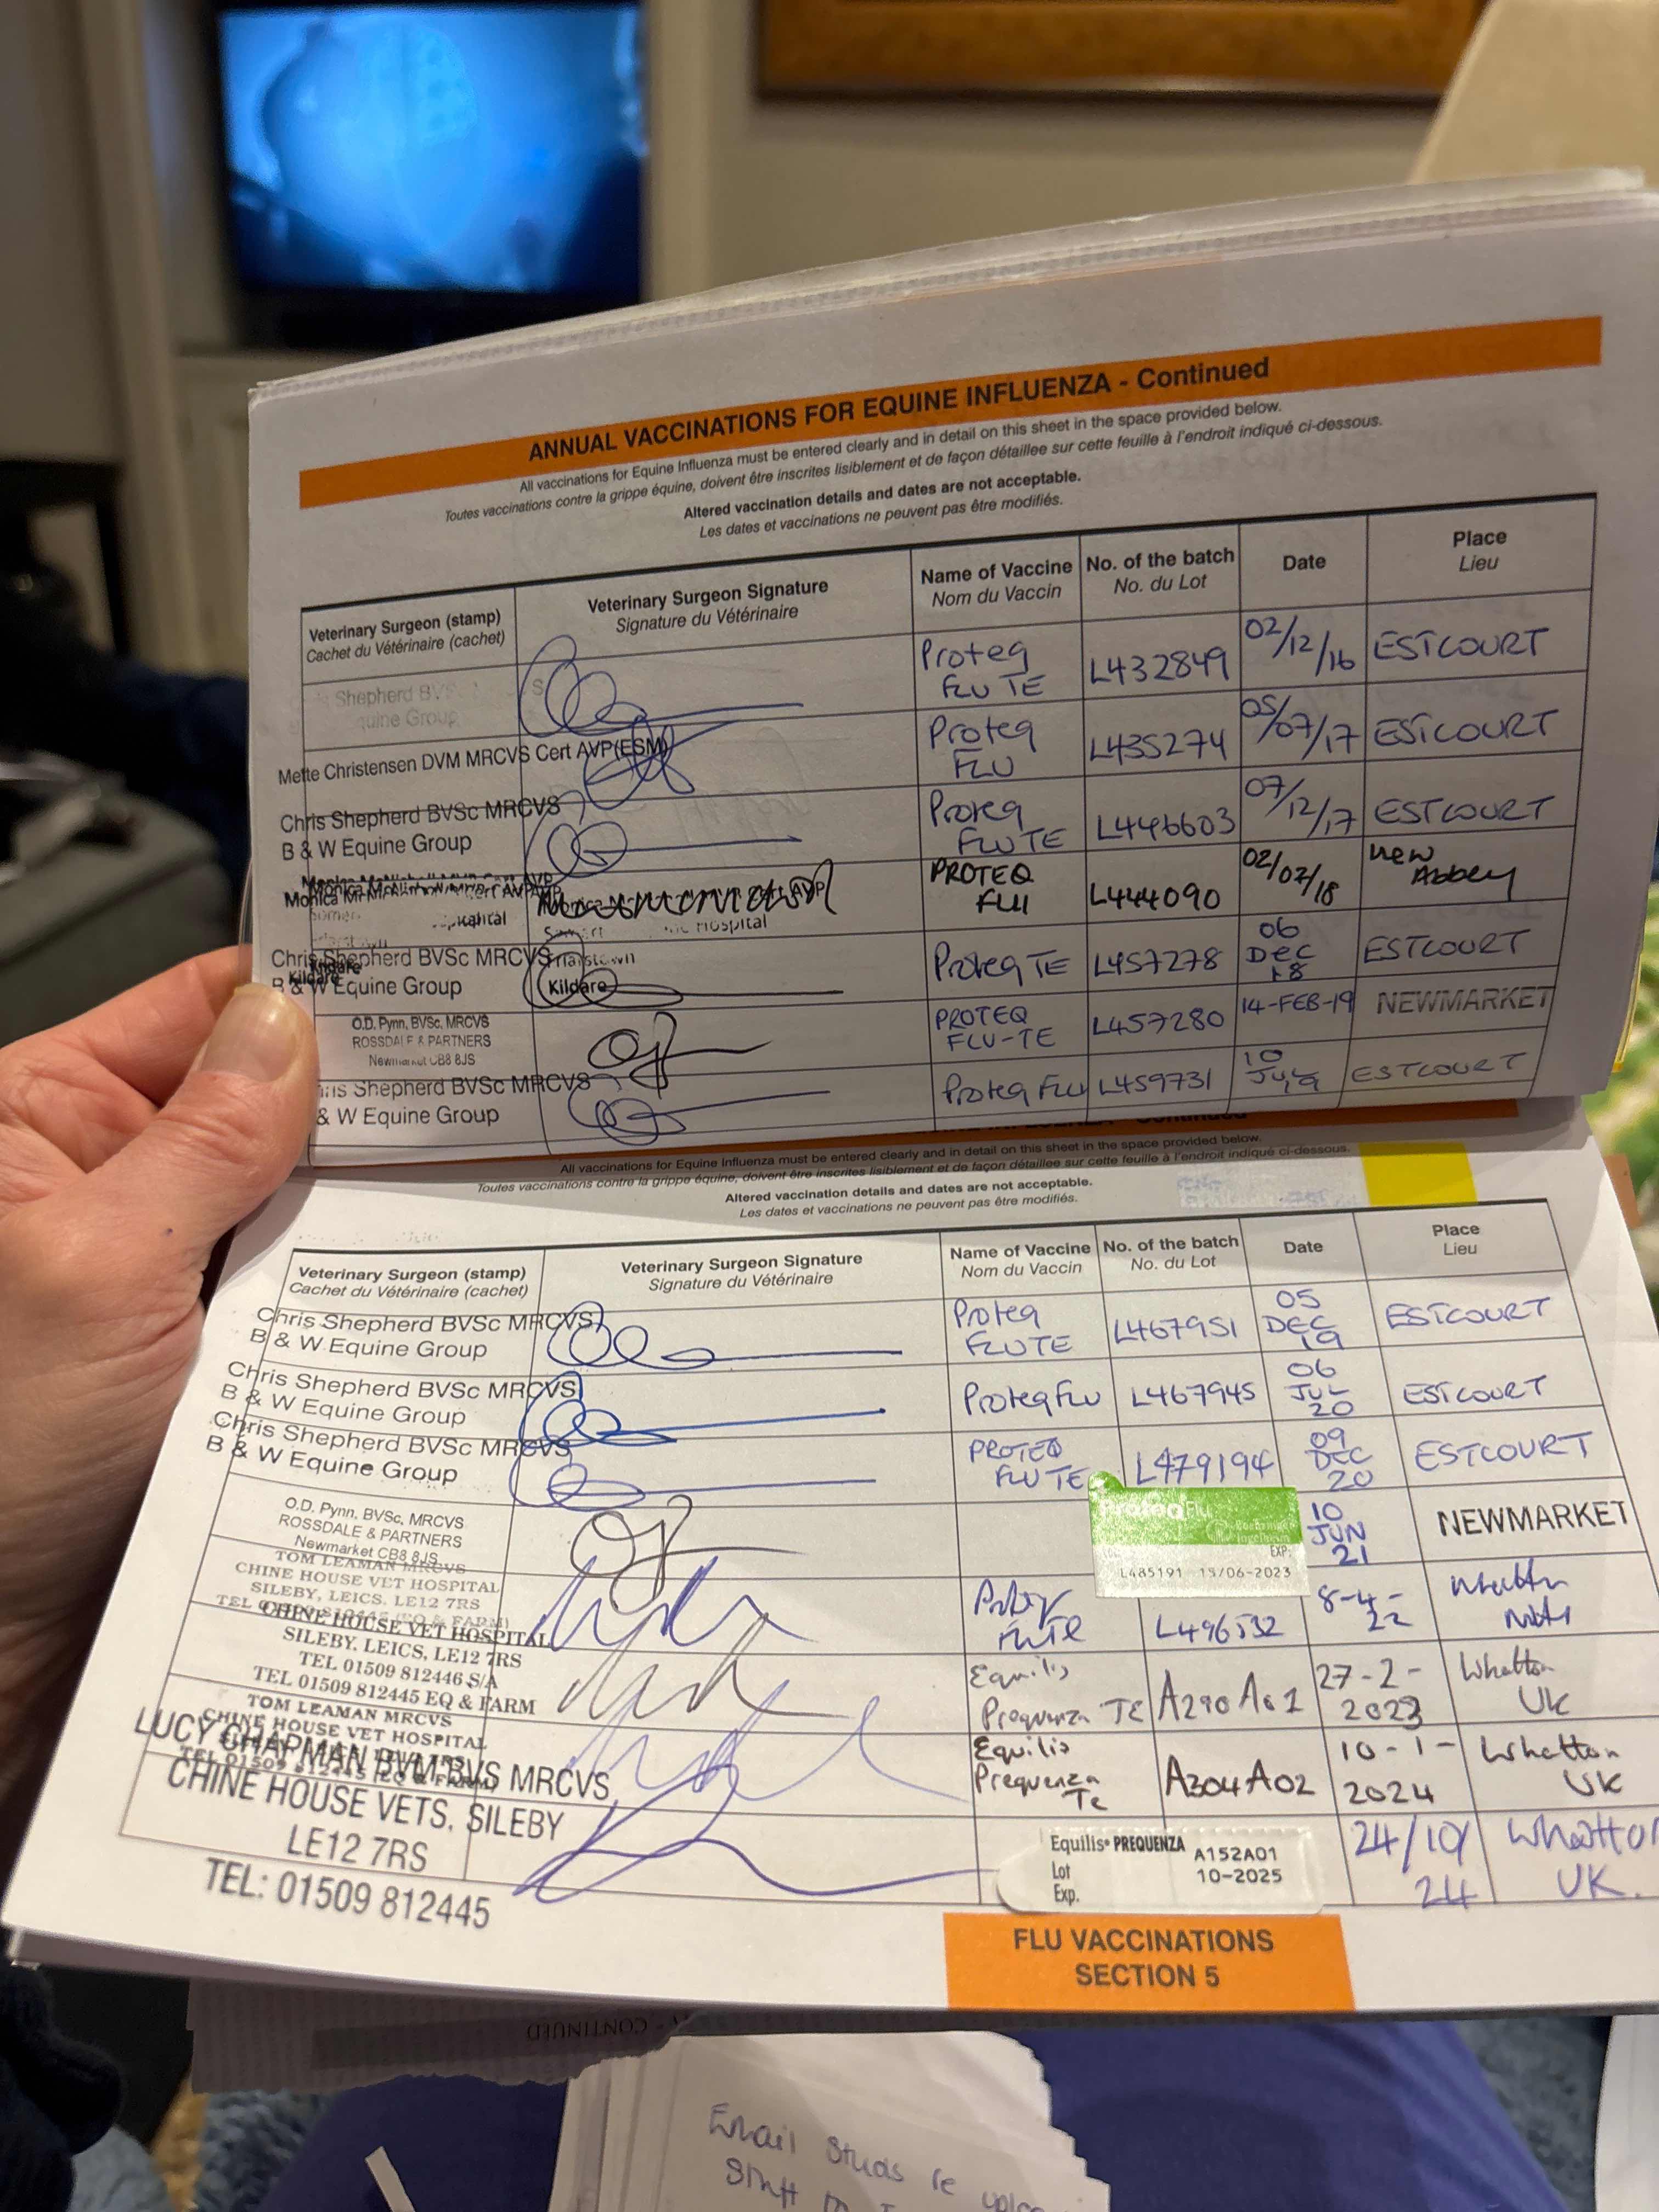 ANNUAL VACCINATIONS FOR EQUINE INFLUENZA - Continued
All vaccinations for Equine Influenza must be entered clearly and in detail on this sheet in the space provided below.
Toutes vaccinations contre la grippe équine, doivent être inscrites lisiblement et de façon détaillee sur cette feuille à l'endroit indiqué ci-dessous.
Altered vaccination details and dates are not acceptable.
Les dates et vaccinations ne peuvent pas être modifiés.
Veterinary Surgeon (stamp) Veterinary Surgeon Signature Name of Vaccine No. of the batch Date Place
Cachet du Vétérinaire (cachet) Signature du Vétérinaire Nom du Vaccin No. du Lot Lieu
Shepherd BVS
quine Group
Proteq
FLU TE
L432849
02/12/16
ESTCOURT
Mette Christensen DVM MRCVS Cert AVP(ESM)
Proteq
FLU
L435274
05/07/17
ESTCOURT
Chris Shepherd BVSc MRCVS
B & W Equine Group
Proteq
FLUTE
L446603
07/12/17
ESTCOURT
Monica
Hospital
Kildare
PROTEQ
FLU
L444090
02/02/18
New
Abbey
Chris Shepherd BVSc MRCVS
B & W Equine Group
Proteq TE
L457278
06
DEC
18
ESTCOURT
O.D. Pynn, BVSc, MRCVS
ROSSDALE & PARTNERS
Newmarket CB8 8JS
PROTEQ
FLU-TE
L457280
14-FEB-19
NEWMARKET
ris Shepherd BVSc MRCVS
& W Equine Group
Proteq FLU
L459731
10
July
ESTCOURT
All vaccinations for Equine Influenza must be entered clearly and in detail on this sheet in the space provided below.
Toutes vaccinations contre la grippe équine, doivent être inscrites lisiblement et de façon détaillee sur cette feuille à l'endroit indiqué ci-dessous.
Altered vaccination details and dates are not acceptable.
Les dates et vaccinations ne peuvent pas être modifiés.
Veterinary Surgeon (stamp) Veterinary Surgeon Signature Name of Vaccine No. of the batch Date Place
Cachet du Vétérinaire (cachet) Signature du Vétérinaire Nom du Vaccin No. du Lot Lieu
Chris Shepherd BVSc MRCVS
B & W Equine Group
Proteq
FLUTE
L467951
05
DEC
19
ESTCOURT
Chris Shepherd BVSc MRCVS
B & W Equine Group
Proteq FLU
L467945
06
JUL
20
ESTCOURT
Chris Shepherd BVSc MRCVS
B & W Equine Group
PROTEQ
FLUTE
L479194
09
DEC
20
ESTCOURT
O.D. Pynn, BVSc, MRCVS
ROSSDALE & PARTNERS
Newmarket CB8 8JS
ProteqFlu
EXP:
L485191 15/06-2023
10
JUN
21
NEWMARKET
TOM LEAMAN MRCVS
CHINE HOUSE VET HOSPITAL
SILEBY, LEICS. LE12 7RS
L496532
8-4-
22
CHINE HOUSE VET HOSPITAL
SILEBY, LEICS, LE12 7RS
TEL 01509 812446 S/A
TEL 01509 812445 EQ & FARM
Equilis
Prequenza TE
A290A01
27-2-
2023
Whatton
UK
TOM LEAMAN MRCVS
CHINE HOUSE VET HOSPITAL
TEL 01509 812445 (EQ & FARM)
Equilis
Prequenza
Te
A304A02
10-1-
2024
Whatton
UK
LUCY CHAPMAN BVM BVS MRCVS
CHINE HOUSE VETS, SILEBY
LE12 7RS
TEL: 01509 812445
Equilis PREQUENZA A152A01
Lot 10-2025
Exp.
24/10/
24
Whatton
UK.
FLU VACCINATIONS
SECTION 5
CONTINUED
Email Studs re
Stuff